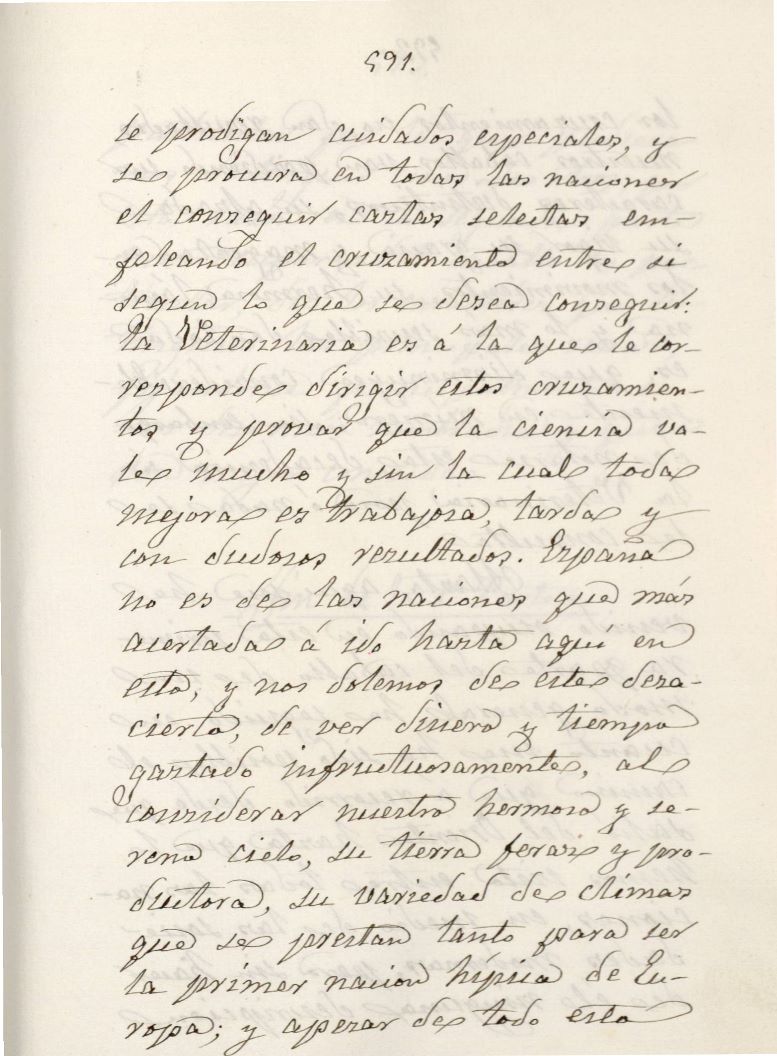 591.
le prodigan cuidados especiales, y
se procura en todas las naciones
el conseguir castas selectas em-
pleando el cruzamiento entre si
segun lo que se desea conseguir:
la Veterinaria es á la que le cor-
responde dirigir estos cruzamien-
tos y provar que la ciencia va-
le mucho y sin la cual toda
mejora es trabajosa, tarda y
con dudosos resultados. España
no es de las naciones que más
acertada á ido hasta aquí en
esto, y nos dolemos de este desa-
cierto, de ver dinero y tiempo
gastado infructuosamente, al
considerar nuestro hermoso y se-
reno cielo, su tierra feraz y pro-
ductora, su variedad de climas
que se prestan tanto para ser
la primer nacion hípica de Eu-
ropa; y apesar de todo esto